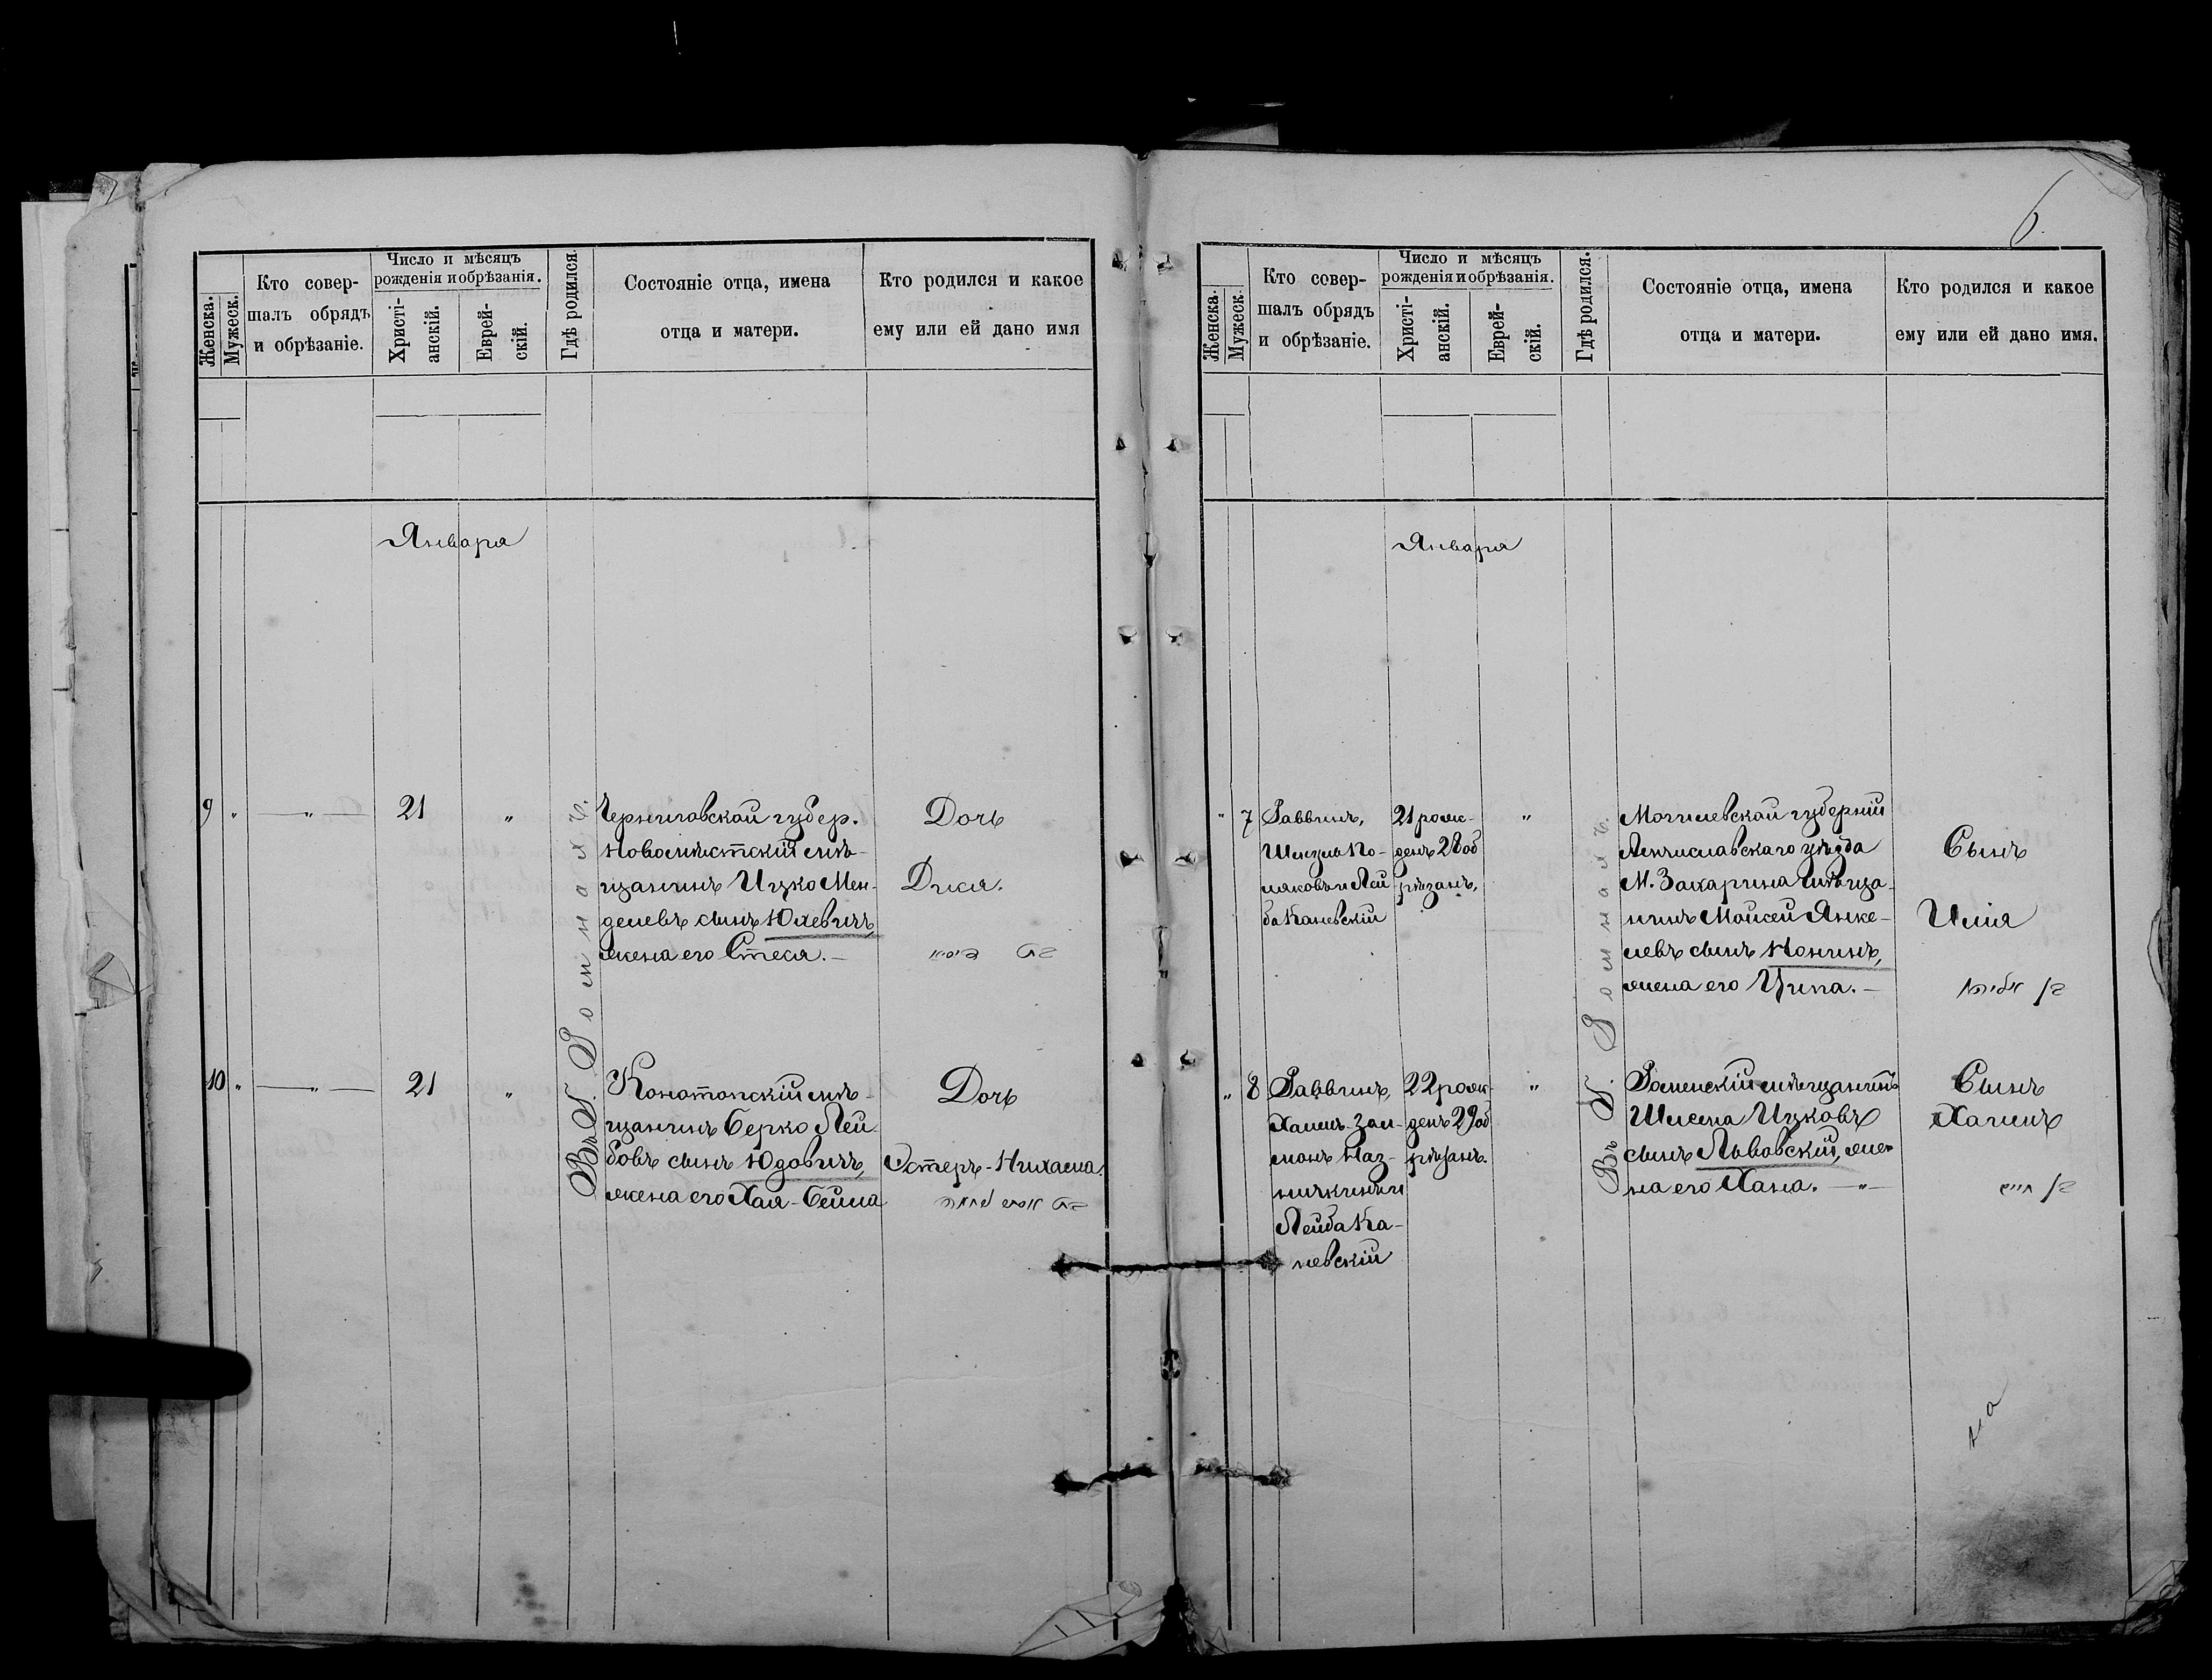 6
Женска.
Мужеск.
Кто совер-
шалъ обрядъ
и обрѣзаніе.
Число и мѣсяцъ
рожденія и обрѣзанія.
Христі-
анскій.
Еврей-
скій.
Гдѣ родился.
Состояніе отца, имена
отца и матери.
Кто родился и какое
ему или ей дано имя
Января
9 " — " — 21 "
Черниговской губер.
Новомѣстскій мѣ-
щанинъ Ицко Мен-
делевъ сынъ Юхевичъ,
жена его Стеся. —
Дочь
Дися.
10 " — " — 21 "
Конотопскій мѣ-
щанинъ Берко Лей-
бовъ сынъ Юдовичъ,
жена его Хая-Бейла
Дочь
Эстеръ-Нихама.
Въ Г. Ромнахъ.
Женска.
Мужеск.
Кто совер-
шалъ обрядъ
и обрѣзаніе.
Число и мѣсяцъ
рожденія и обрѣзанія.
Христі-
анскій.
Еврей-
скій.
Гдѣ родился.
Состояніе отца, имена
отца и матери.
Кто родился и какое
ему или ей дано имя.
Января
" 7
Раввинъ,
Шлиома По-
ляковъ и Лей
ба Каневскій
21 рож-
денъ 28 об
рѣзанъ,
"
Могилевской губерніи
Мстиславскаго уѣзда
М. Захарина мѣща-
нинъ Мойсей Янке-
левъ сынъ Нонинъ,
жена его Ципа. —
Сынъ
Илія
" 8
Раввинъ,
Хаимъ-Зал-
монъ Наз-
Лейба Ка-
невскій
22 рож-
денъ 29 об
рѣзанъ.
"
Роменскій мѣщанинъ
Шлема Ицковъ
сынъ Львовскій, же-
на его Хана. — " —
Сынъ
Хаимъ
Въ Г. Ромнахъ.
на